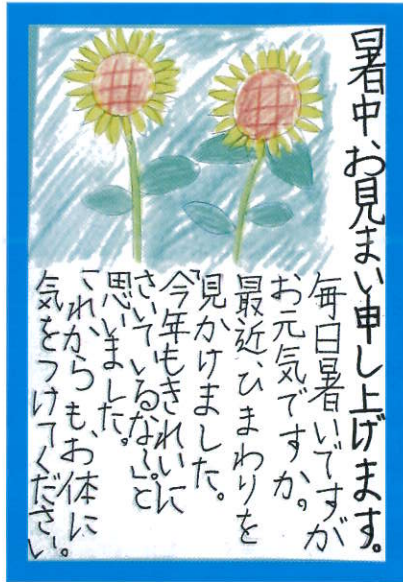 暑中お見まい申し上げます。
毎日暑いですが
お元気ですか。
最近、ひまわりを
見かけました。
「今年もきれいに
さいているな〜。」と
思いました。
これからも、お体に
気をつけてください。